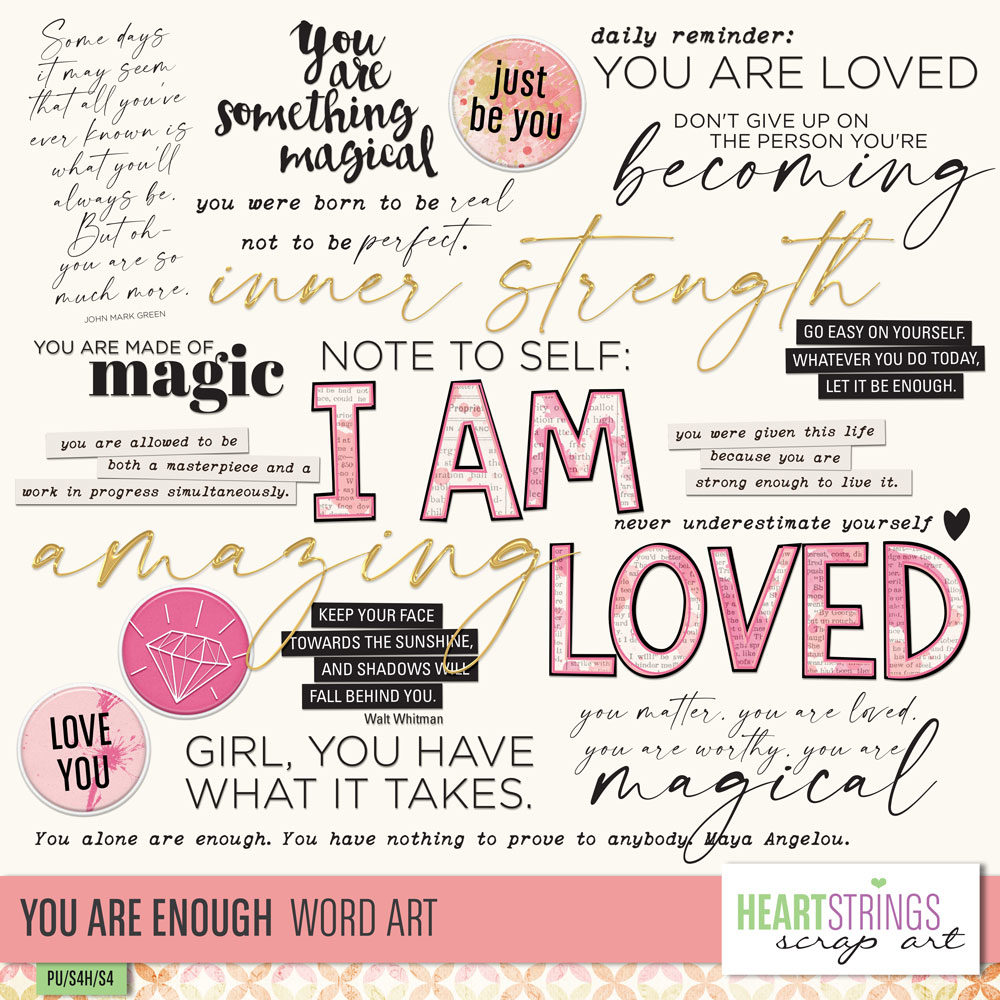 Some days
it may seem
that all you've
ever known is
what you'll
always be.
But oh-
you are so
much more.
JOHN MARK GREEN
You
are
something
magical
just
be you
daily reminder:
YOU ARE LOVED
DON'T GIVE UP ON
THE PERSON YOU'RE
becoming
you were born to be real
not to be perfect.
inner strength
GO EASY ON YOURSELF.
WHATEVER YOU DO TODAY,
LET IT BE ENOUGH.
YOU ARE MADE OF
magic
NOTE TO SELF:
I AM
LOVED
you are allowed to be
both a masterpiece and a
work in progress simultaneously.
you were given this life
because you are
strong enough to live it.
never underestimate yourself
amazing
KEEP YOUR FACE
TOWARDS THE SUNSHINE,
AND SHADOWS WILL
FALL BEHIND YOU.
Walt Whitman
LOVE
YOU
GIRL, YOU HAVE
WHAT IT TAKES.
you matter. you are loved.
you are worthy. you are
magical
You alone are enough. You have nothing to prove to anybody. Maya Angelou.
YOU ARE ENOUGH WORD ART
HEARTSTRINGS
scrap art
PU/S4H/S4